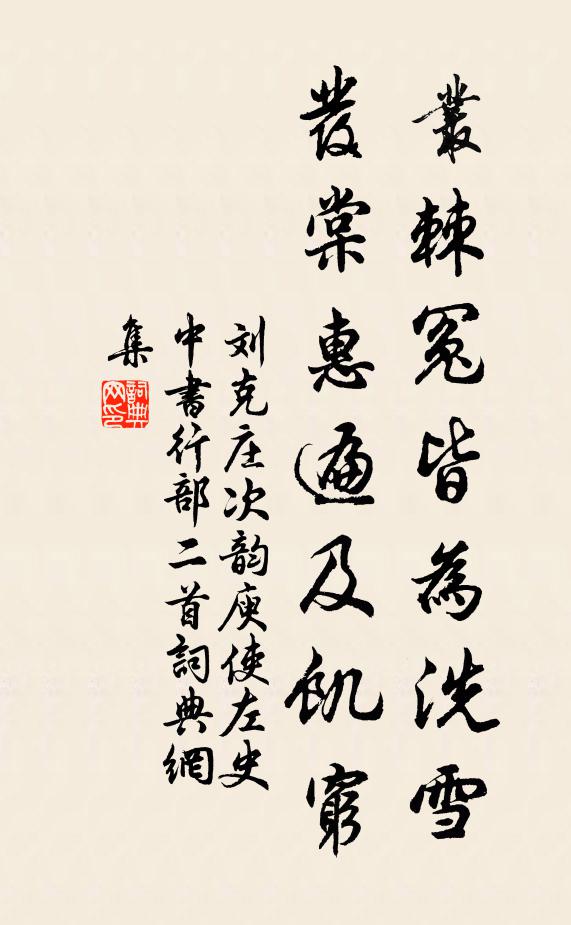 叢棘冤皆為洗雪
發棠惠遍及飢窮
刘克庄次韵庾使左史
中書行部二首詞典網
集
詞典
网印